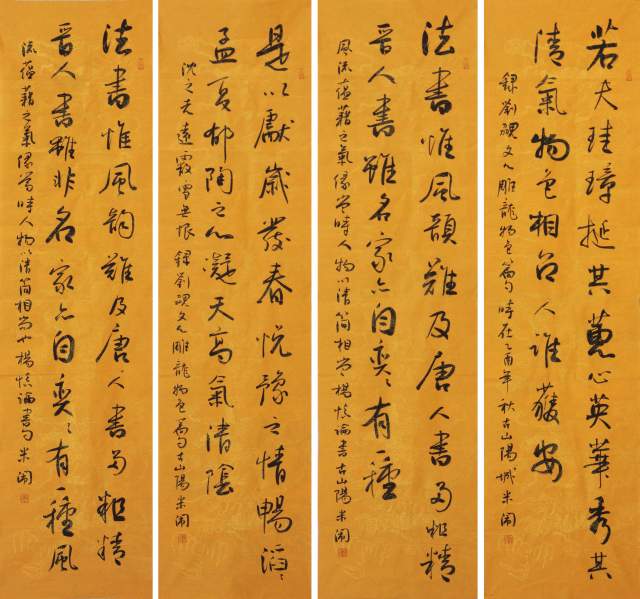 若夫珪璋挺其蕙心英華秀其
清氣物色相召人誰獲安
錄劉勰文心雕龍物色篇句時在乙酉年秋古山陽城米闹
法書惟風韻難及唐人書多粗精
晉人書雖名家亦自奕〻有一種
風流蘊藉之氣緣當時人物以清簡相尚楊慎論書古山陽米闹
是以獻歲發春悅豫之情暢滔〻
孟夏郁陶之心凝天高氣清陰
沈之志遠霰雪無垠錄劉勰文心雕龍物色篇句古山陽米闹
法書惟風韵難及唐人書多粗精
晉人書雖非名家亦自奕〻有一種風
流蘊藉之氣緣當時人物以清簡相尚也楊慎論書句米闹